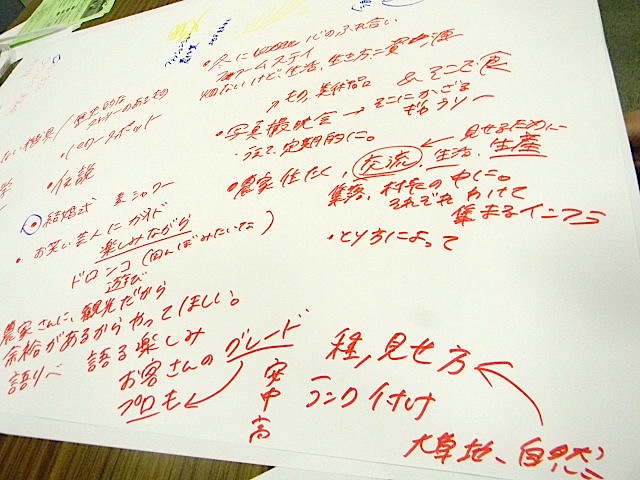 歴史的な
ストーリーのあるもの
・パワースポット
・伝説
・結婚式
・お笑い芸人にガイド
楽しみながら
ドロンコ(田んぼみたいな)
遊び
農家さんに、観光だから
余裕があるからやってほしい。
語りべ 語る楽しみ
お客さんのグレード
プロも
安
中
高
ランク付け
種、見せ方
大草地、自然
・冬に 心のふれ合い
ファームステイ
生活、生き方に
美術品 & そこで食
・写真撮映会 → そこにかざる
ギャラリー
定期的に。
・農家住たく、交流、生活、生産
見せるために
集落、村長の中に。
それぞれわけて
集まるインフラ
・とり方によって